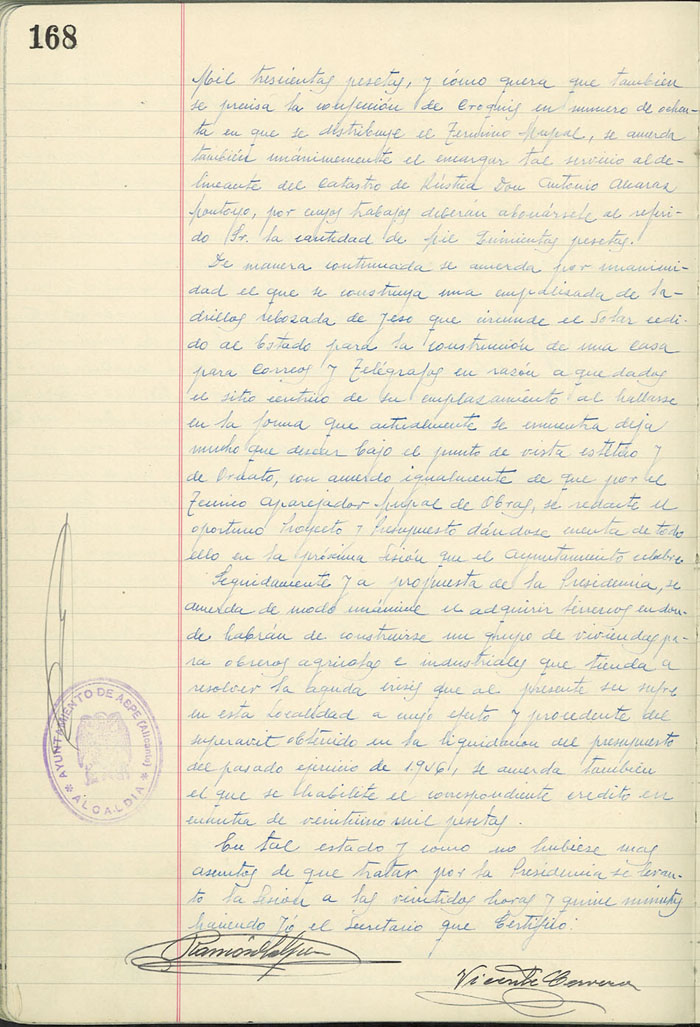 168
Mil trescientas pesetas, y cómo quera que tambien
se precisa la confección de Croquis en número de ochen-
ta en que se distribuye el Término Mupal, se acuerda
también unánimemente el encargar tal servicio al de-
lineante del Catastro de Rústica Don Antonio Alcaraz
Montoyo, por cuyos trabajos deberán abonársele al referi-
do Sr. la cantidad de Mil Quinientas pesetas.
De manera continuada se acuerda por unanimi-
dad el que se construya una empalisada de la-
drillos rebozada de Jeso que circunde el Solar cedi-
do al Estado para la construcción de una Casa
para Correos y Telégrafos en razón a que dados
el sitio centrico de su emplazamiento al hallarse
en la forma que actualmente se encuentra deja
mucho que desear bajo el punto de vista estético y
de Ornato, con acuerdo igualmente de que por el
Tecnico Aparejador Mupal de Obras, se redacte el
oportuno Proyecto y Presupuesto dándose cuenta de todo
ello en la próxima Sesión que el Ayuntamiento celebre.
Seguidamente y a propuesta de la Presidencia, se
acuerda de modo unánime el adquirir térrenos en don-
de habrán de construirse un grupo de viviendas pa-
ra obreros agricolas e industriales que tienda a
resolver la aguda crisis que al presente se sufre
en esta localidad a cuyo efecto y procedente del
superavit obtenido en la liquidacion del presupuesto
del pasado ejercicio de 1.946, se acuerda también
el que se habilite el correspondiente credito en
cuantia de veinticinco mil pesetas.
En tal estado y como no hubiese mas
asuntos de que tratar por la Presidencia se levan-
to la Sesión a las veintidos horas y quince minutos
haciendo Yó el Secretario que Certifico.
Ramón
Vicente Cervera
AYUNTAMIENTO DE ASPE (Alicante)
* ALCALDIA *